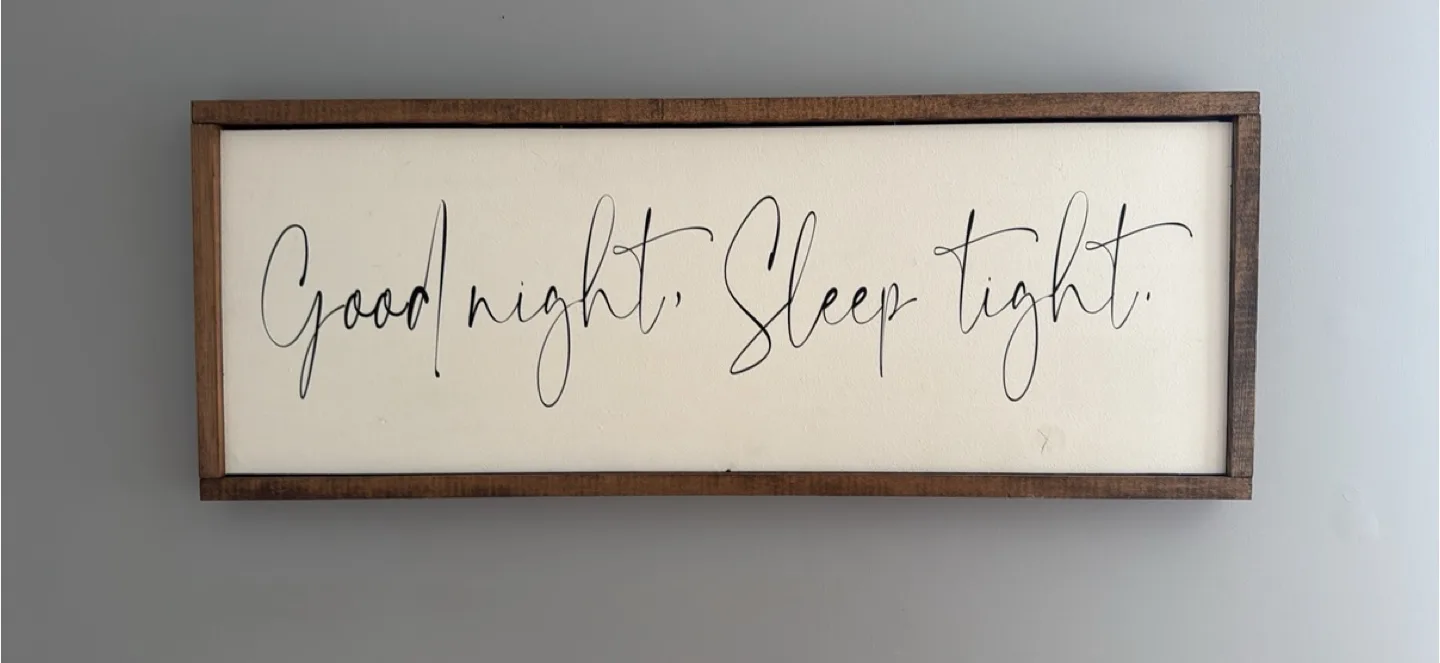 Good night, Sleep tight.